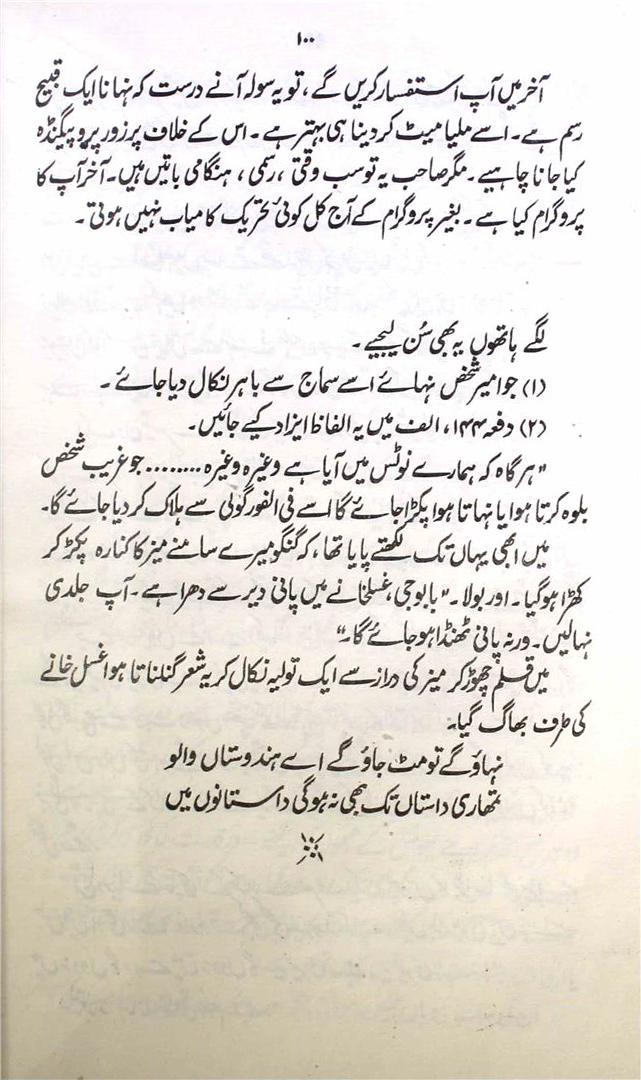 ۱۰۰
آخر میں آپ استفسار کریں گے، تو یہ سولہ آنے درست کہ نہانا ایک قبیح
رسم ہے۔ اسے ملیامیٹ کر دینا ہی بہتر ہے۔ اس کے خلاف پر زور پروپیگنڈہ
کیا جانا چاہیے۔ مگر صاحب یہ تو سب وقتی، رسمی، ہنگامی باتیں ہیں۔ آخر آپ کا
پروگرام کیا ہے۔ بغیر پروگرام کے آج کل کوئی تحریک کامیاب نہیں ہوتی۔
لگے ہاتھوں یہ بھی سُن لیجیے۔
(۱) جو امیر شخص نہائے اسے سماج سے باہر نکال دیا جائے۔
(۲) دفعہ ۱۴۴، الف میں یہ الفاظ ایزاد کیے جائیں۔
"ہر گاہ کہ ہمارے نوٹس میں آیا ہے وغیرہ وغیرہ ........ جو غریب شخص
بلوہ کرتا ہوا یا نہاتا ہوا پکڑا جائے گا اسے فی الفور گولی سے ہلاک کر دیا جائے گا۔
میں ابھی یہاں تک لکھنے پایا تھا، کہ گنگو میرے سامنے میز کا کنارہ پکڑ کر
کھڑا ہو گیا۔ اور بولا۔ "بابو جی، غسلخانے میں پانی دیر سے دھرا ہے۔ آپ جلدی
نہالیں۔ ورنہ پانی ٹھنڈا ہو جائے گا۔"
میں قلم چھوڑ کر میز کی دراز سے ایک تولیہ نکال کر یہ شعر گنگناتا ہوا غسل خانے
کی طرف بھاگ گیا۔
نہاؤ گے تو مٹ جاؤ گے اے ہندوستاں والو
تمھاری داستاں تک بھی نہ ہوگی داستانوں میں